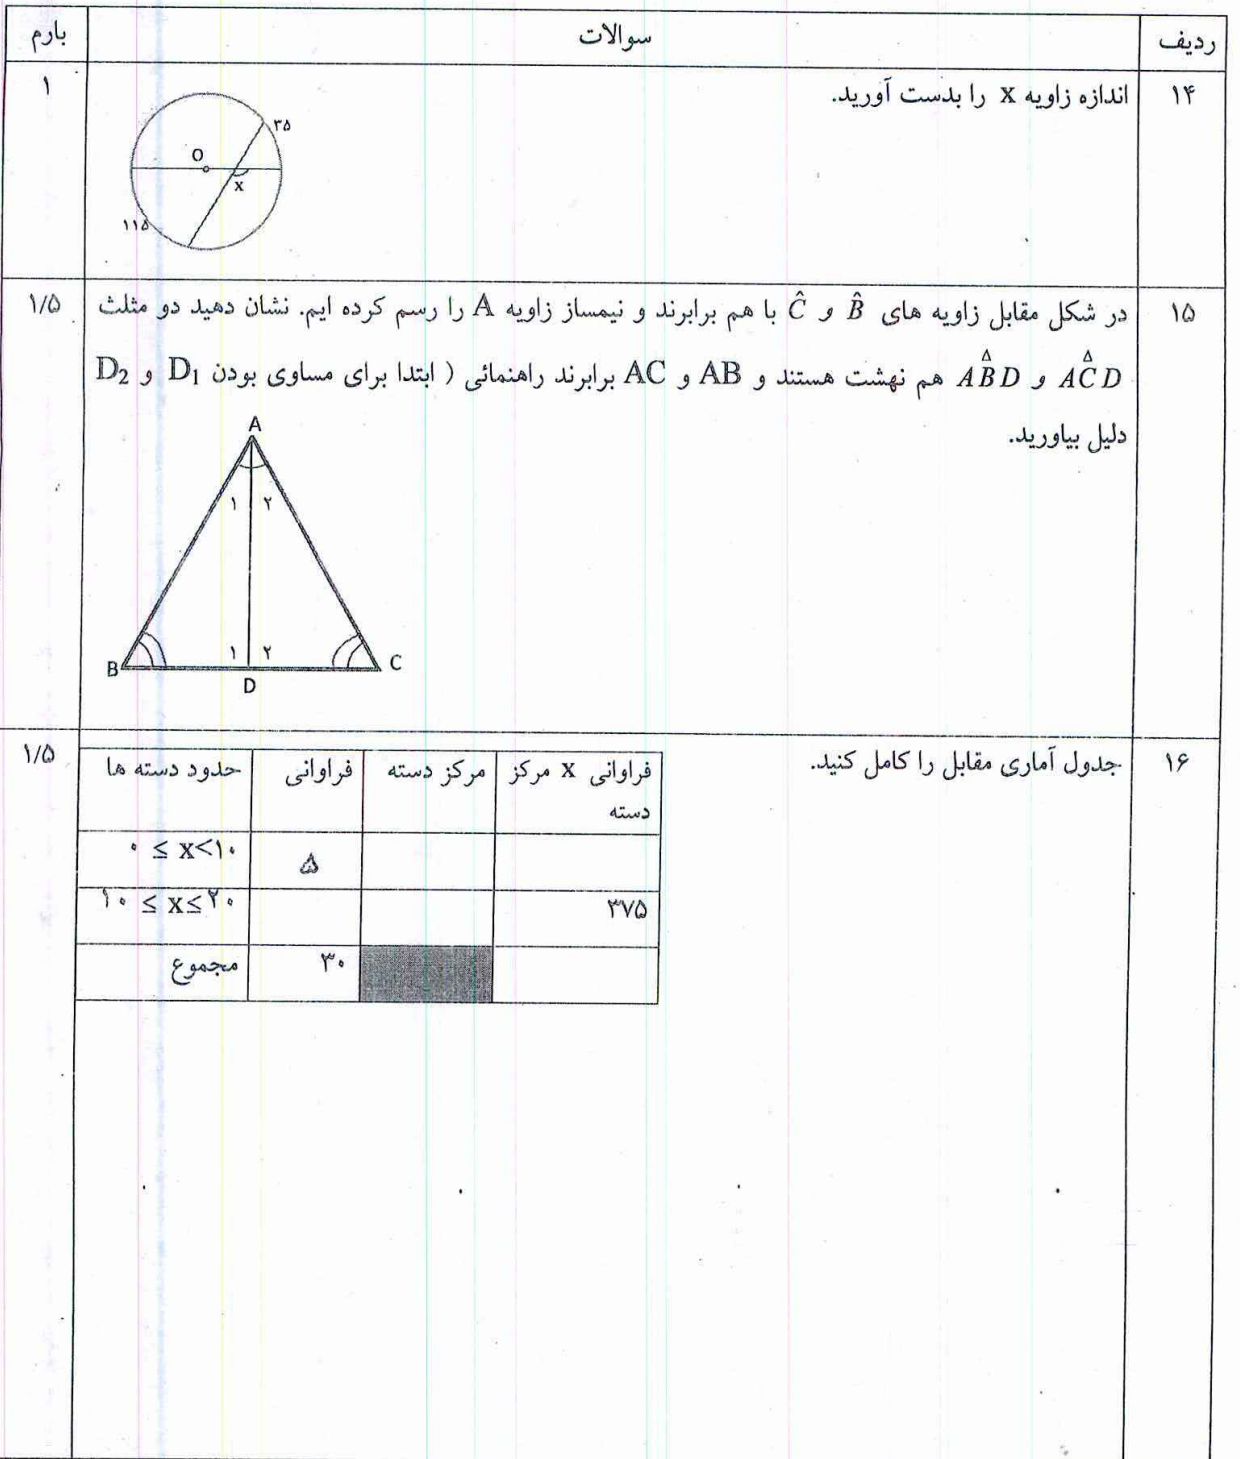 ردیف سوالات بارم
۱۴ اندازه زاویه x را بدست آورید. ۱
۳۵
O
x
۱۱۵
۱۵ در شکل مقابل زاویه های B̂ و Ĉ با هم برابرند و نیمساز زاویه A را رسم کرده ایم. نشان دهید دو مثلث ۱/۵
AĈD و AB̂D هم نهشت هستند و AB و AC برابرند راهنمائی ( ابتدا برای مساوی بودن D₁ و D₂
دلیل بیاورید.
A
۱ ۲
۱ ۲
B C
D
۱۶ جدول آماری مقابل را کامل کنید. ۱/۵
حدود دسته ها فراوانی مرکز دسته فراوانی x مرکز
دسته
۰ ≤ x<۱۰ ۵
۱۰ ≤ x≤۲۰ ۳۷۵
مجموع ۳۰